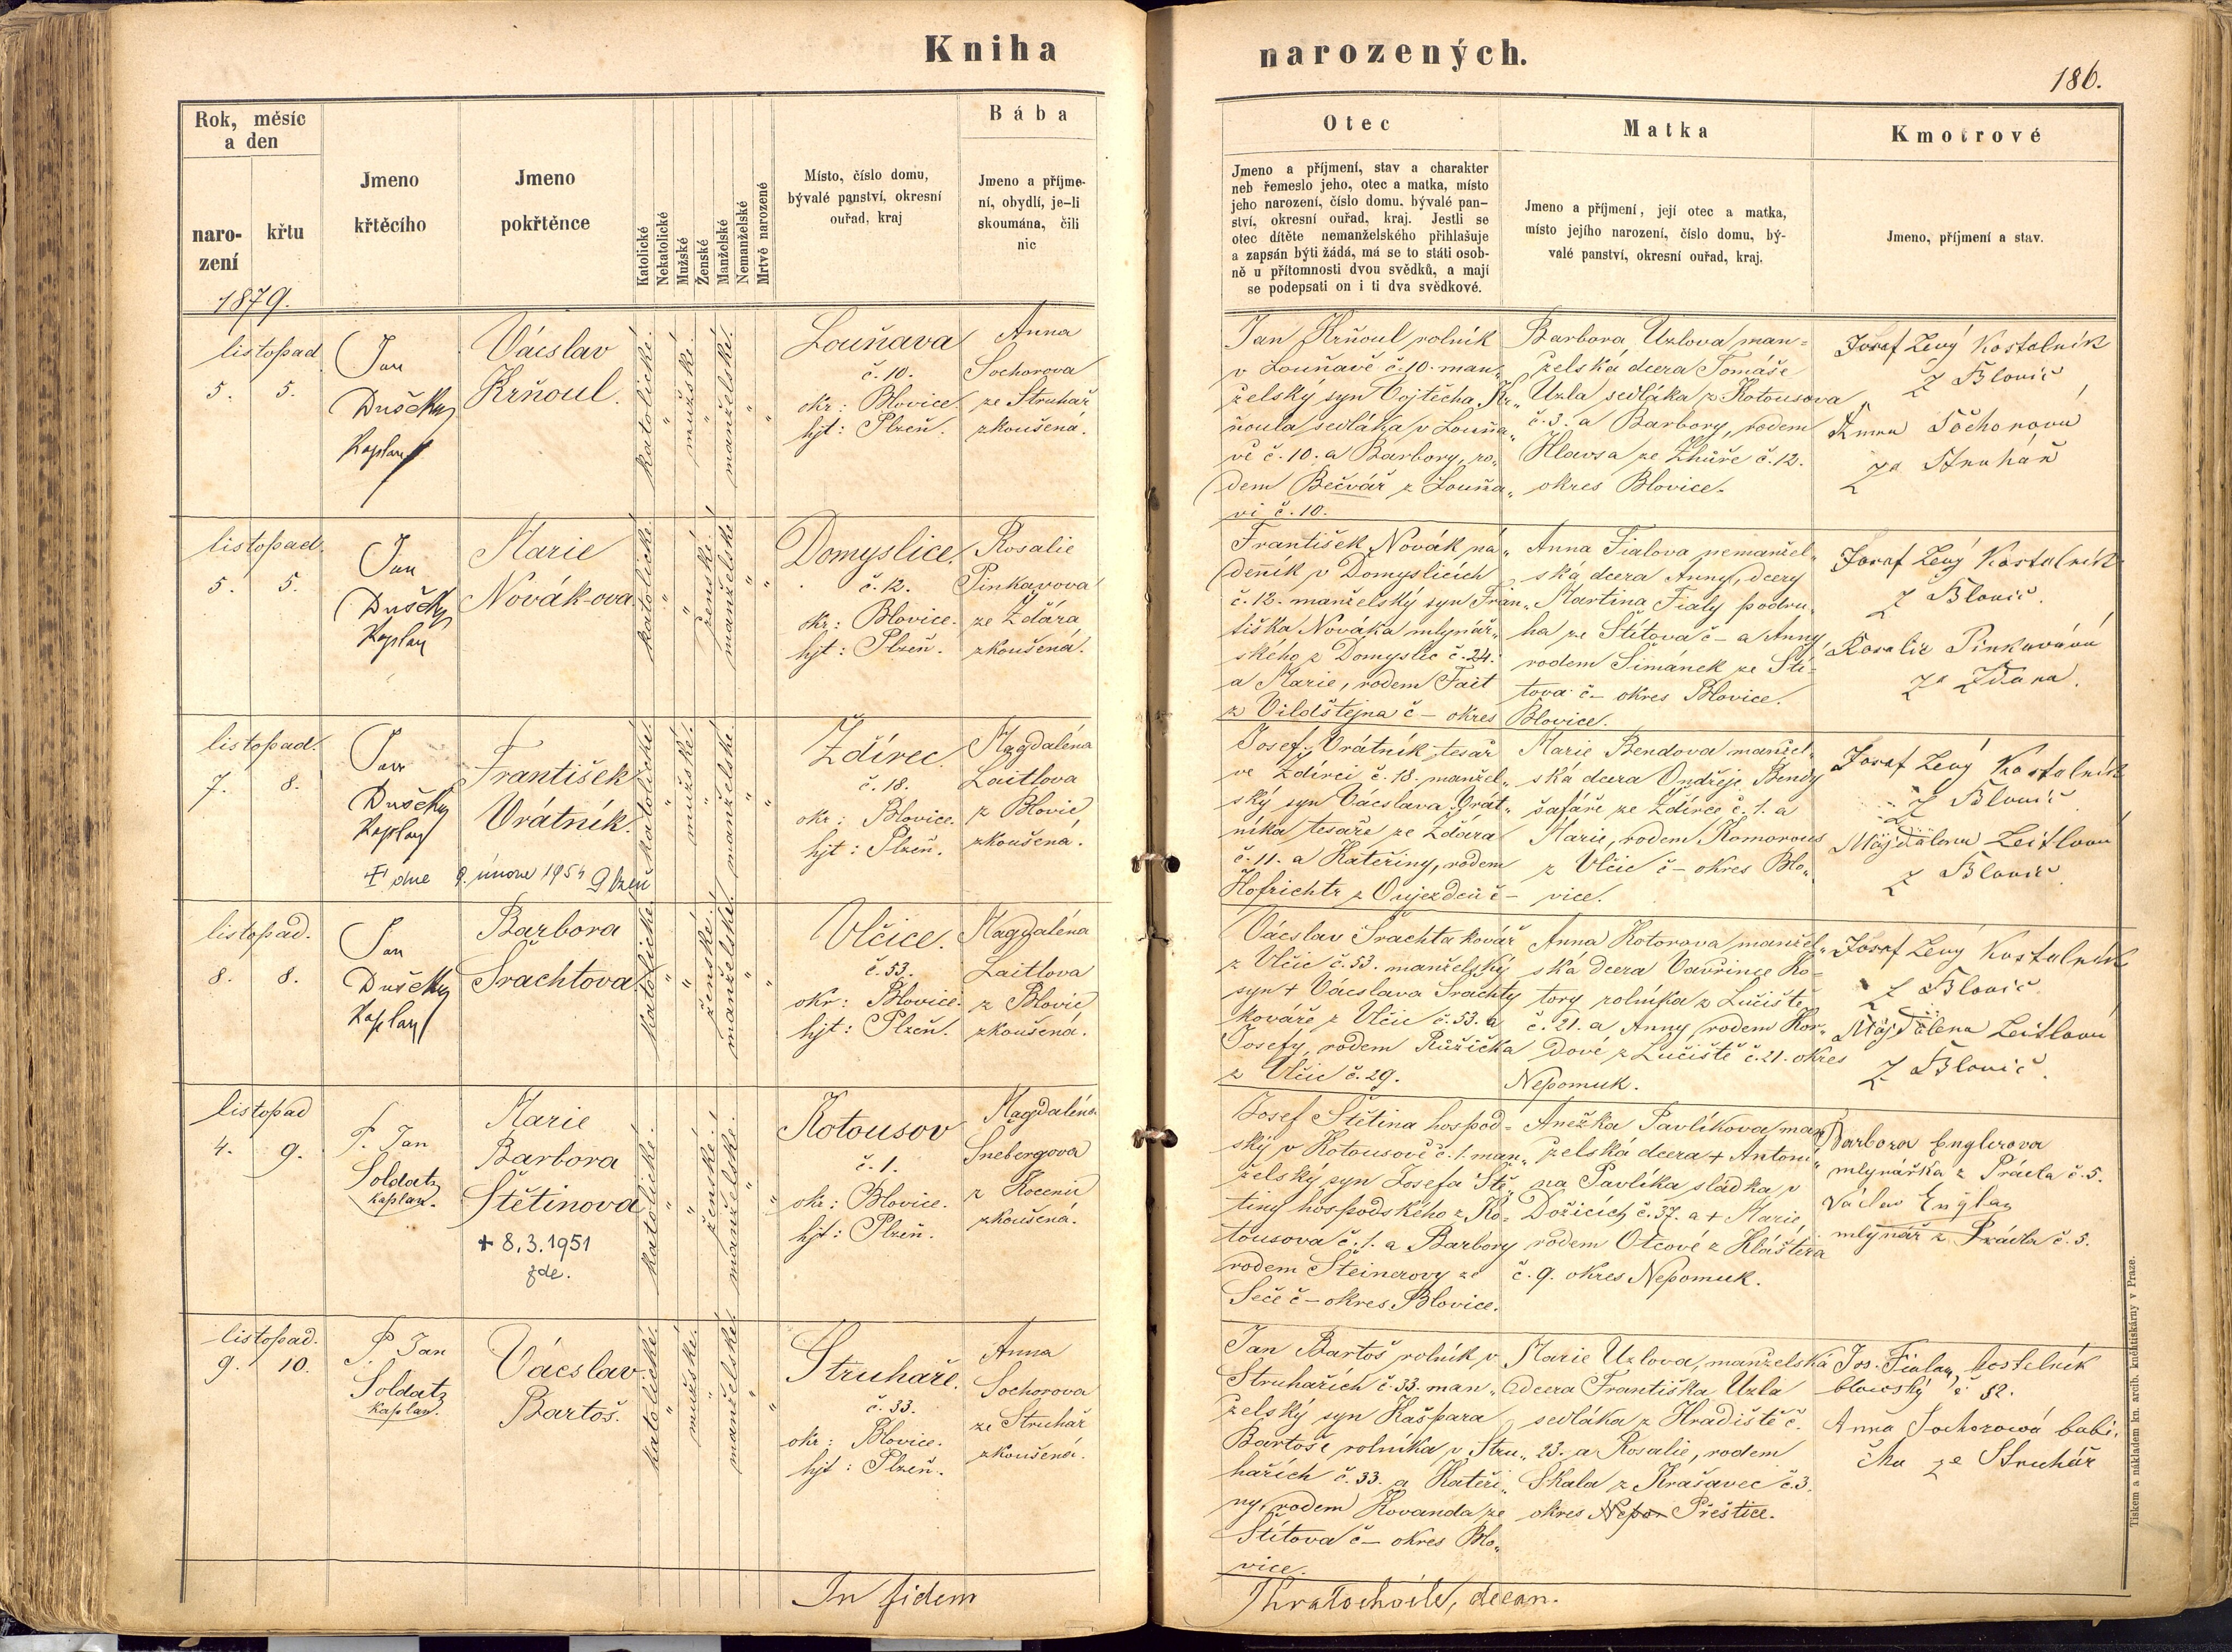 Kniha
narozených.
186.
Rok, měsíc
a den
naro-
zení
křtu
1879.
Jmeno
křtěcího
Jmeno
pokřtěnce
Katolické
Nekatolické
Mužské
Ženské
Manželské
Nemanželské
Mrtvě narozené
Místo, číslo domu,
bývalé panství, okresní
ouřad, kraj
Bába
Jmeno a příjme-
ní, obydlí, je-li
skoumána, čili
nic
Otec
Jmeno a příjmení, stav a charakter
neb řemeslo jeho, otec a matka, místo
jeho narození, číslo domu, bývalé pan-
ství, okresní ouřad, kraj. Jestli se
otec dítěte nemanželského přihlašuje
a zapsán býti žádá, má se to státi osob-
ně u přítomnosti dvou svědků, a mají
se podepsati on i ti dva svědkové.
Matka
Jmeno a příjmení, její otec a matka,
místo jejího narození, číslo domu, bý-
valé panství, okresní ouřad, kraj.
Kmotrové
Jmeno, příjmení a stav.
listopad
5. 5.
Jan
Dušek
Kaplan
Vácslav
Krňoul.
katolické.
"
mužské.
"
manželské.
"
"
Louňava
č. 10.
okr: Blovice.
hjt: Plzeň.
Anna
Sochorova
ze Struhař
zkoušená.
Jan Krňoul rolník
v Louňavě č. 10. man„
želský syn Vojtěcha Kr„
ňoula sedláka v Louňa„
vě č. 10. a Barbory, ro„
dem Bečvář z Louňa„
vi č. 10.
Barbora Uzlova man=
želská dcera Tomáše
Uzla sedláka z Kotousova
č. 3. a Barbory, rodem
Hlavsa ze Zhůře č. 12.
okres Blovice.
Josef Levý Kostelník
z Blovic
Anna Sochorová
ze Struhař
listopad.
5. 5.
Jan
Dušek
Kaplan
Marie
Novák-ova
katolické.
"
"
ženské.
manželské.
"
"
Domyslice.
č. 12.
okr: Blovice.
hjt: Plzeň.
Rosalie
Pinkavova
ze Ždára
zkoušená.
František Novák ná„
deník v Domyslicích
č. 12. manželský syn Fran„
tiška Nováka mlynář„
ského z Domyslic č. 24.
a Marie, rodem Fait
z Vildštejna č – okres
Anna Fialova nemanžel„
ská dcera Anny, dcery
Martina Fialy podru„
ha ze Štítova č – a Anny,
rodem Šimánek ze Ští-
tova č – okres Blovice.
Blovice.
Josef Levý Kostelník
z Blovic.
Rosalie Pinkavová
ze Ždara.
listopad.
7. 8.
Jan
Dušek
Kaplan
František
Vrátník.
katolické.
"
mužské.
"
manželské.
"
"
† dne 9. února 1954 Plzeň
Ždírec.
č. 18.
okr: Blovice.
hjt: Plzeň.
Magdaléna
Laitlova
z Blovic
zkoušená.
Josef Vrátník tesař
ve Ždírci č. 18. manžel„
ský syn Vácslava Vrát„
níka tesaře ze Ždára
č. 11. a Kateřiny, rodem
Hofrichtr z Oujezdců č –
Marie Bendova manžel„
ská dcera Ondřeje Bendy
šafáře ze Ždírce č. 1. a
Marie, rodem Komorous
z Vlčic č – okres Blo„
vice.
Josef Levý Kostelník
z Blovic
Majdalena Leitlová
z Blovic
listopad.
8. 8.
Jan
Dušek
Kaplan
Barbora
Šrachtova
katolické.
"
"
ženské.
manželské.
"
"
Vlčice.
č. 53.
okr: Blovice.
hjt: Plzeň.
Magdaléna
Laitlova
z Blovic
zkoušená.
Vácslav Šrachta kovář
z Vlčic č. 53. manželský
syn † Vácslava Šrachty
kováře z Vlčic č. 53. a
Josefy, rodem Růžička
z Vlčic č. 29.
Anna Kotorova manžel„
ská dcera Vavřince Ko=
tory rolníka z Lučiště
č. 21. a Anny, rodem Kor„
dové z Lučiště č. 21. okres
Nepomuk.
Josef Levý Kostelník
z Blovic.
Majdalena Leitlová
z Blovic.
listopad
4. 9.
P. Jan
Soldat
kaplan.
Marie
Barbora
Štětinova
katolické.
"
"
ženské.
manželské.
"
"
+ 8.3.1951
zde.
Kotousov
č. 1.
okr: Blovice.
hjt: Plzeň.
Magdaléna
Šnebergova
z Kocenic
zkoušená.
Josef Štětina hospod=
ský v Kotousově č. 1. man„
želský syn Josefa Ště„
tiny hospodského z Ko=
tousova č. 1. a Barbory
rodem Šteinerovy ze
Seče č – okres Blovice.
Anežka Pavlíkova man
želská dcera † Antoní„
na Pavlíka sládka v
Dožicích č. 37. a † Marie,
rodem Otcové z Kláštera
č. 9. okres Nepomuk.
Barbora Englerova
mlynářka z Prádla č. 5.
Václav Engler
mlynář z Prádla č. 5.
listopad.
9. 10.
P. Jan
Soldat
Kaplan.
Vácslav
Bartoš.
katolické.
"
mužské.
"
manželské.
"
"
Struhaře.
č. 33.
okr: Blovice.
hjt: Plzeň.
Anna
Sochorova
ze Struhař
zkoušená.
Jan Bartoš rolník v
Struhařích č. 33. man„
želský syn Kašpara
Bartoše, rolníka v Stru„
hařích č. 33. a Kateři„
ny, rodem Kovanda ze
Štítova č – okres Blo„
vice.
Marie Uzlova, manželská
dcera Františka Uzla
sedláka z Hradiště č.
23. a Rosalie, rodem
Skala z Krašavec č. 3.
okres Nepo Přeštice.
Jos. Fiala, kostelník
blovický č 52.
Anna Sochorová babi„
čka ze Struhař
In fidem
Vhratochvíle, decan.
Tiskem a nákladem kn. arcib. knihtiskárny v Praze.